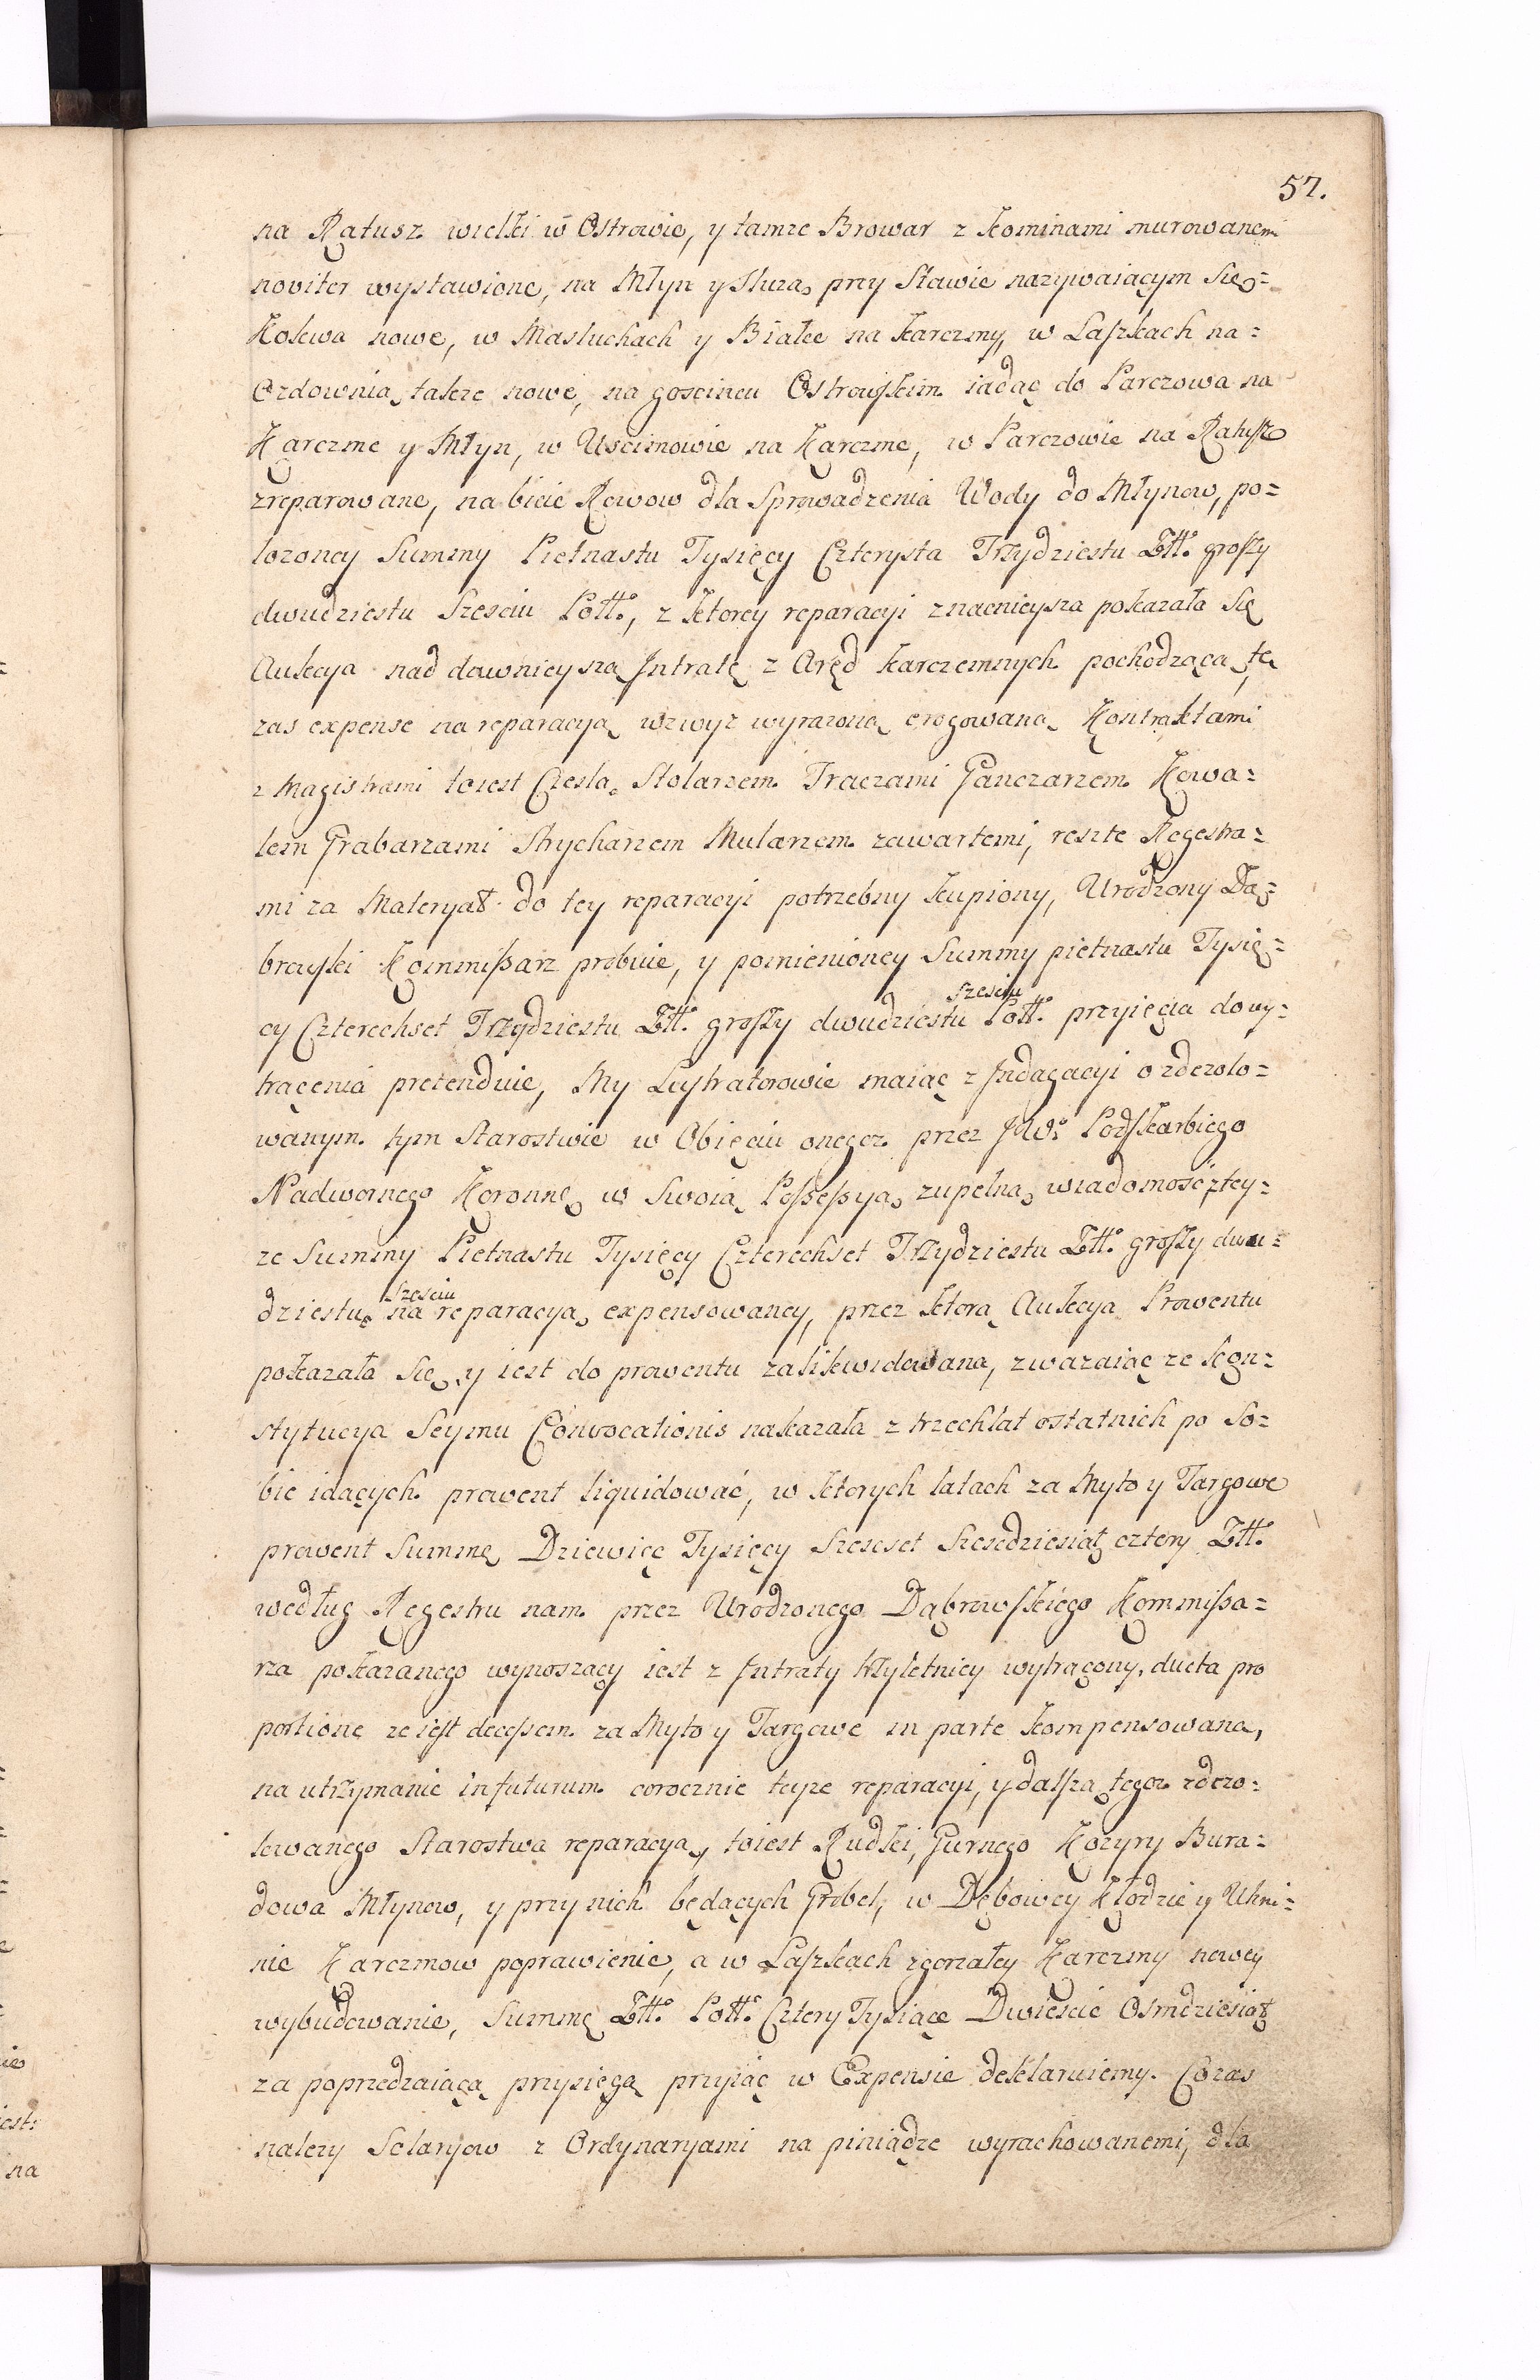 57.
na Ratusz wielki w Ostrowie, y tamze Browar z kominami murowanemi
noviter wystawione, na Młyn y Sluzą przy Stawie nazywaiącym Się=
Kolewa nowe, w Masluchach y Białce na karczmy, w Laszkach na=
Ozdownią takze nowe, na goscincu Ostrowskim iadąc do Parczowa na
Karczme y Młyn, w Uscimowie na Karczme, w Parczowie na Ratusz
zreparowane, na bicie Rowow dla Sprowadzenia Wody do Młynow, po=
lozoney Summy Pietnastu Tysięcy Czterysta Trzydziestu Złł. groszy
dwudziestu Szesciu Poll., z ktorey reparacyi znacnieysza pokazała Się
Aukcya nad dawnieyszą Jntratę z Aręd karczemnych pochodząca, tę
zas expense na reparacyą wzwyz wyrazoną erogowaną Kontraktami
z Magistrami toiest Cieslą Stolarzem Traczami Ganczarzem Kowa=
lem Grabarzami Strycharzem Mularzem zawartemi, reszte Regestra=
mi za Materyał do tey reparacyi potrzebny kupiony, Urodzony Dą=
browski Kommissarz probuie, y pomienioney Summy pietnastu Tysię=
cy Czterechset Trzydziestu Złł. groszy dwudziestu Szesciu Poll. przyięcia do wy=
trącenia pretenduie, My Lustratorowie maiąc z Jndagacyi o zdezolo=
wanym tym Starostwie w Obięciu onegoz przez JW: Podskarbiego
Nadwornego Koronne w Swoią Possessyą zupełną wiadomość, z tey=
ze Summy Pietnastu Tysięcy Czterechset Trzydziestu Złł. groszy dwu=
dziestu Szesciu na reparacyą expensowaney, przez ktorą Aukcya Prowentu
pokazała Się y iest do prowentu zalikwidowana, zwazaiąc ze kon=
stytucya Seymu Convocationis nakazała z trzech lat ostatnich po So=
bie idących prowent liquidować, w ktorych latach za Myto y Targowe
prowent Summę Dziewięć Tysięcy Szescset Szescdziesiąt cztery Złł.
według Regestru nam przez Urodzonego Dąbrowskiego Kommissa=
rza pokazanego wynoszący iest z Jntraty trzyletniey wytrącony, ducta pro
portione ze iest decessem za Myto y Targowe in parte kompensowana,
na utrzymanie in futurum corocznie teyze reparacyi, y dalszą tegoz zdezo=
lowanego Starostwa reparacyą, toiest Rudki, Gurnego Kozyry Bura=
dowa Młynow, y przy nich będących Grobel, w Dębowey Kłodzie y Uhni=
nie Karczmow poprawienie, a w Laszkach zgorzałey Karczmy nowey
wybudowanie, Summę Złł. Poll. Cztery Tysiące Dwiescie Osmdziesiąt
za poprzedzaiącą przysięgą przyiąć w Expensie deklaruiemy. Cozas
nalezy Salaryow z Ordynaryami na piniądze wyrachowanemi, dla